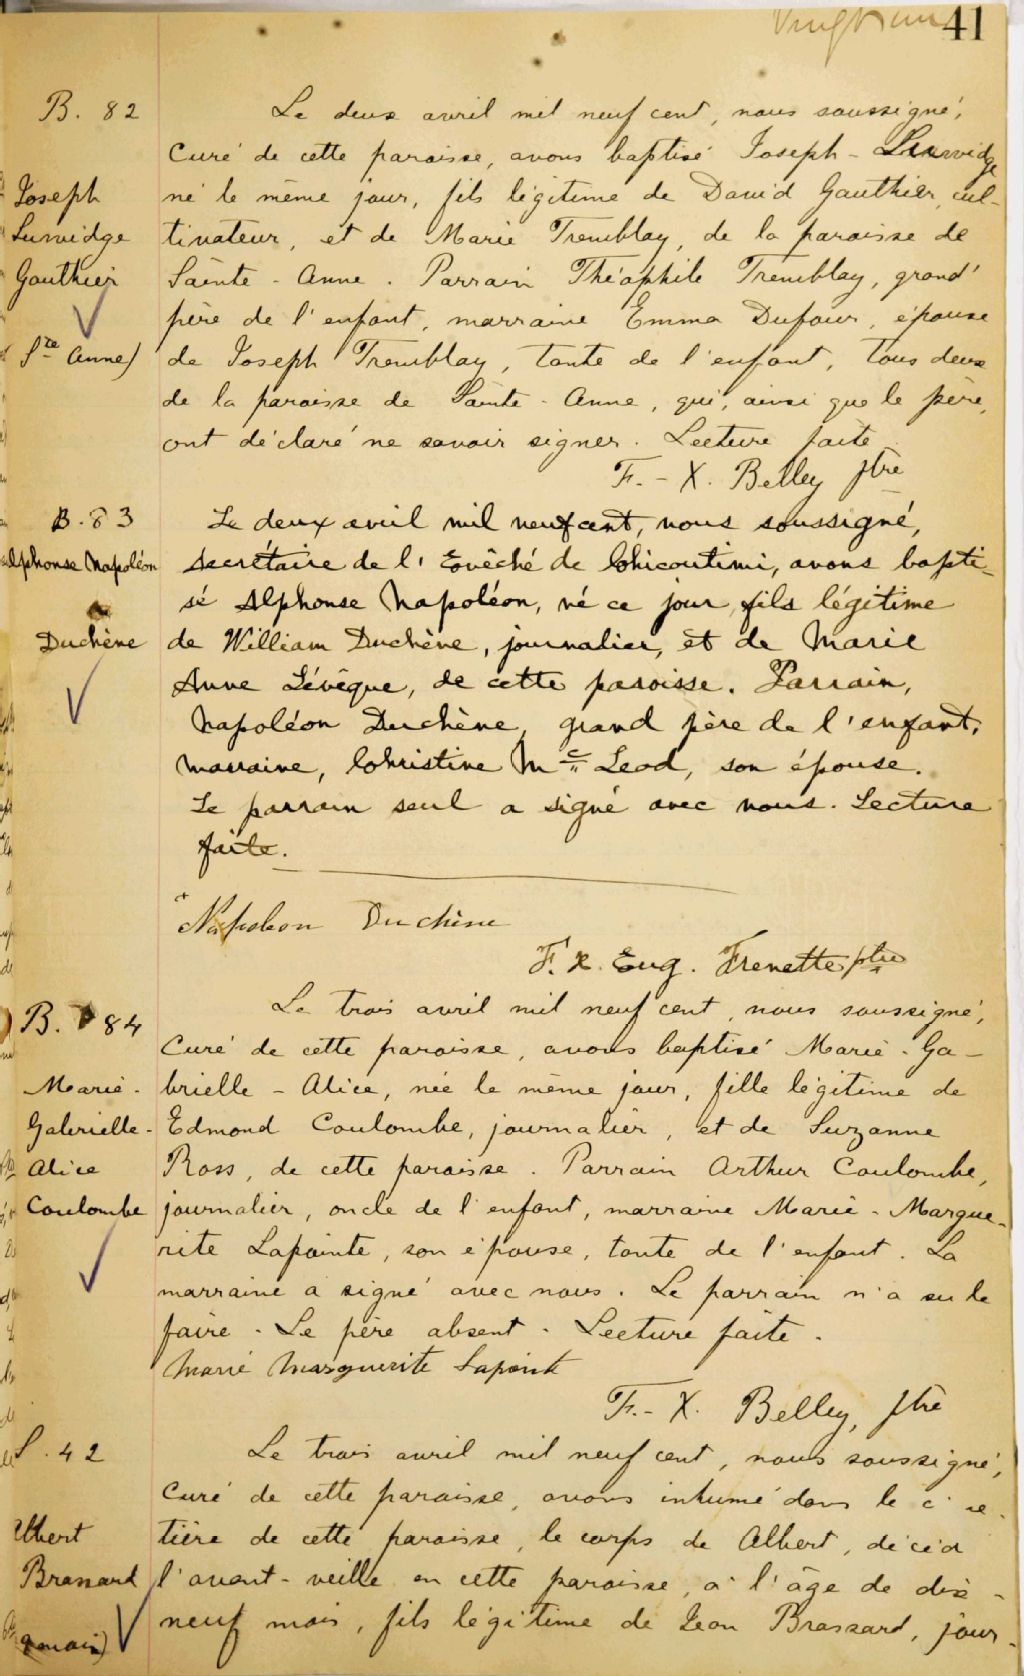 Vingt un
41
B. 82
Joseph
Lurvidge
Gauthier
Ste Anne)
Le deux avril mil neuf cent, nous soussigné,
Curé de cette paroisse, avons baptisé Joseph - Lurvidge
né le même jour, fils légitime de David Gauthier, cul-
tivateur, et de Marie Tremblay, de la paroisse de
Sainte - Anne. Parrain Théophile Tremblay, grand'
père de l'enfant, marraine Emma Dufour, épouse
de Joseph Tremblay, tante de l'enfant, tous deux
de la paroisse de Sainte - Anne, qui, ainsi que le père,
ont déclaré ne savoir signer. Lecture faite
F. - X. Belley ptre
B. 83
Alphonse Napoléon
Duchène
Le deux avril mil neuf cent, nous soussigné,
secrétaire de l'Evêché de Chicoutimi, avons bapti-
sé Alphonse Napoléon, né ce jour, fils légitime
de William Duchène, journalier, et de Marie
Anne Lévêque, de cette paroisse. Parrain,
Napoléon Duchène, grand père de l'enfant,
marraine, Christine Mc Leod, son épouse.
Le parrain seul a signé avec nous. Lecture
faite.
Napoleon Duchène
F. X. Eug. Frenette ptre
B. 84
Marie -
Gabrielle -
Alice
Coulombe
Le trois avril mil neuf cent, nous soussigné,
Curé de cette paroisse, avons baptisé Marie - Ga-
brielle - Alice, née le même jour, fille légitime de
Edmond Coulombe, journalier, et de Suzanne
Ross, de cette paroisse. Parrain Arthur Coulombe,
journalier, oncle de l'enfant, marraine Marie - Margue-
rite Lapointe, son épouse, tante de l'enfant. La
marraine a signé avec nous. Le parrain n'a su le
faire. Le père absent. Lecture faite.
Marie Marguerite Lapointe
F. - X. Belley, ptre
S. 42
Albert
Brassard
Le trois avril mil neuf cent, nous soussigné,
Curé de cette paroisse, avons inhumé dans le cime-
tière de cette paroisse, le corps de Albert, décédé
l'avant-veille en cette paroisse, à l'âge de dix-
neuf mois, fils légitime de Jean Brassard, jour-